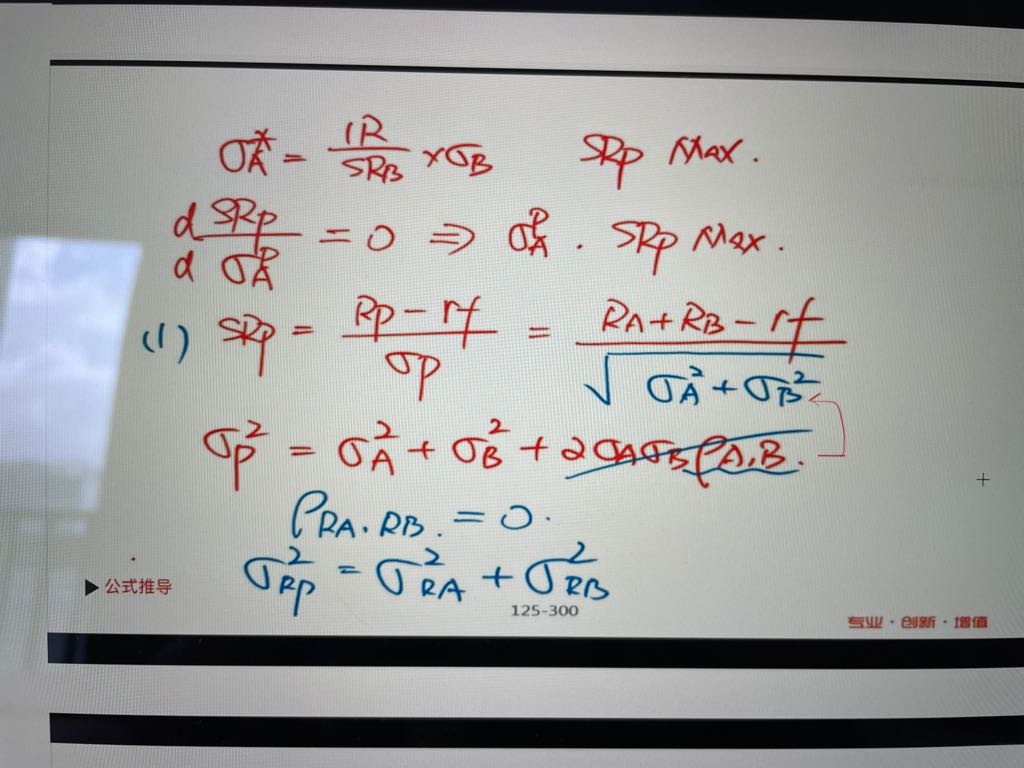 σA* = IR/SRB × σB SRp Max.
d SRp / d σA^P = 0 ⇒ σA^P. SRp Max.
(1) SRp = (Rp − rf)/σp = (RA + RB − rf)/√(σA² + σB²)
σp² = σA² + σB² + 2σAσBρA,B.
ρRA.RB. = 0.
σRp² = σRA² + σRB²
▶公式推导
125-300
专业·创新·增值